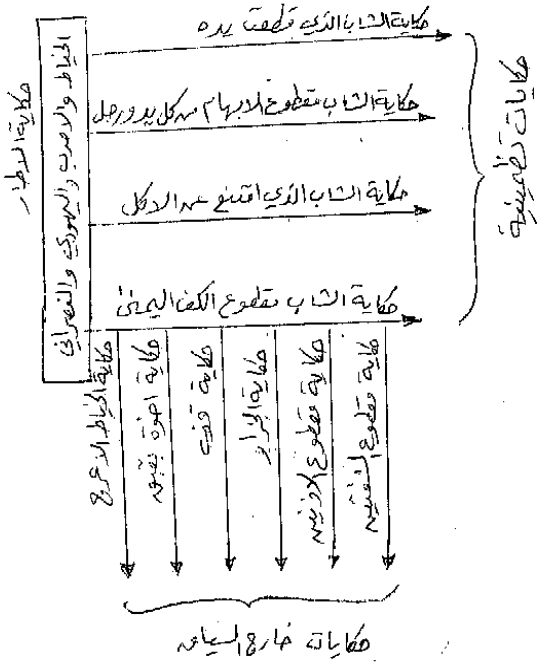 حكاية الاطار
الخياط والاحدب واليهودي والنصراني
حكاية الشاب الذي قطعت يده
حكاية الشاب مقطوع الابهام من كل يد ورجل
حكاية الشاب الذي امتنع عن الاكل
حكاية الشاب مقطوع الكف اليمنى
حكايات تضمينية
حكاية الخياط الاعرج
حكاية اخوه بقبق
حكاية
حكاية الجزار
حكاية مقطوع الاذنين
حكاية مقطوع الشفتين
حكايات خارج السياق